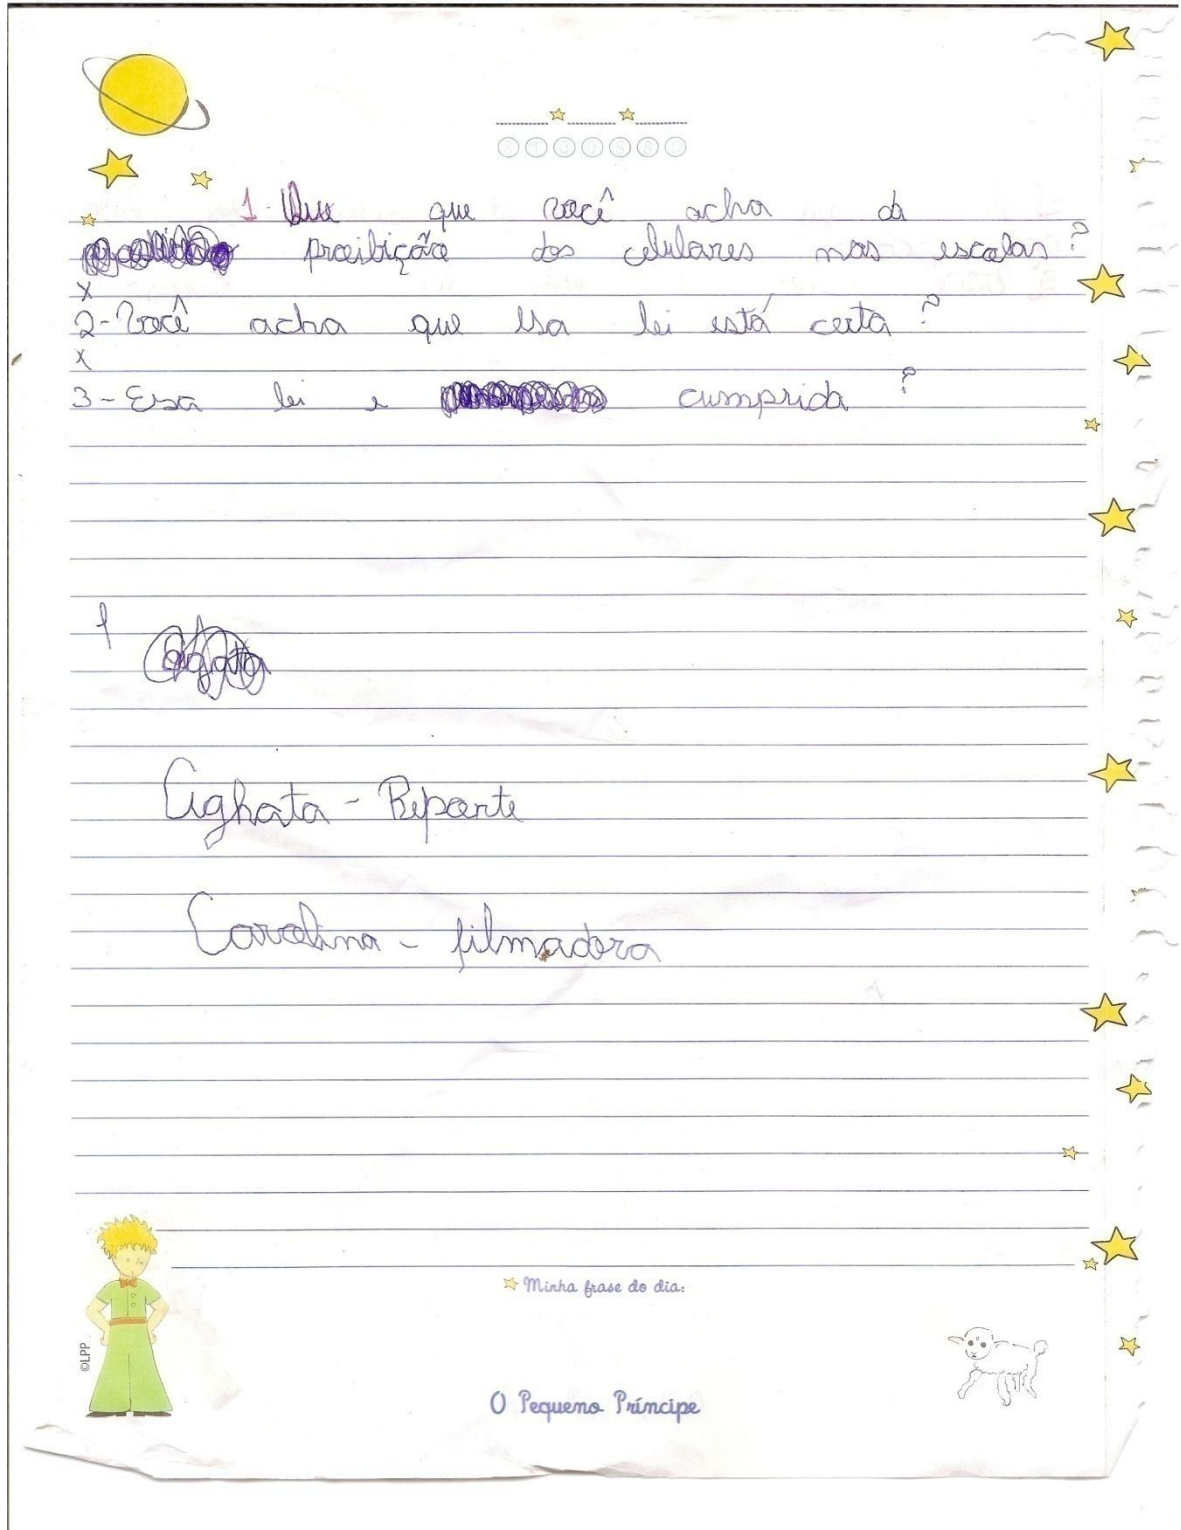 1- Que que você acha da
proibição dos celulares nas escolas?
x
2- Você acha que Esa lei está certa?
x
3- Esa lei e cumprida?
Aghata - Reporte
Carolina - filmadora
Minha frase do dia:
©LPP
O Pequeno Príncipe